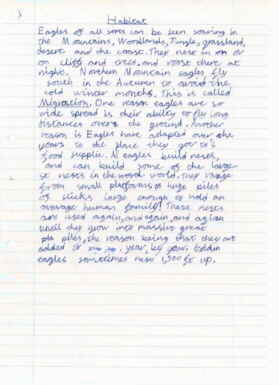 Habitat
Eagles of all sorts can be seen soaring in
the Mountains, Woodlands, Jungle, grassland,
desert and the coast. They nest in on or
on cliffs and trees, and roost there at
night. Northern Mountain eagles fly
south in the Autumn to avoid the
cold winter months. This is called
Migration. One reason eagles are so
wide spread is their ability to fly long
distances over the ground. Another
reason is Eagles have adapted over the
years to the place they go to's
food supplie. All eagles build nests,
and can build some of the large-
st nests in the world. They range
from small platforms to huge piles
of sticks large enough to hold an
average human family! These nests
are used again, and again, and again
until they grow into massive great
piles, the reason being that they are
added to year, by year. Golden
eagles sometimes nest 1,500 ft up.